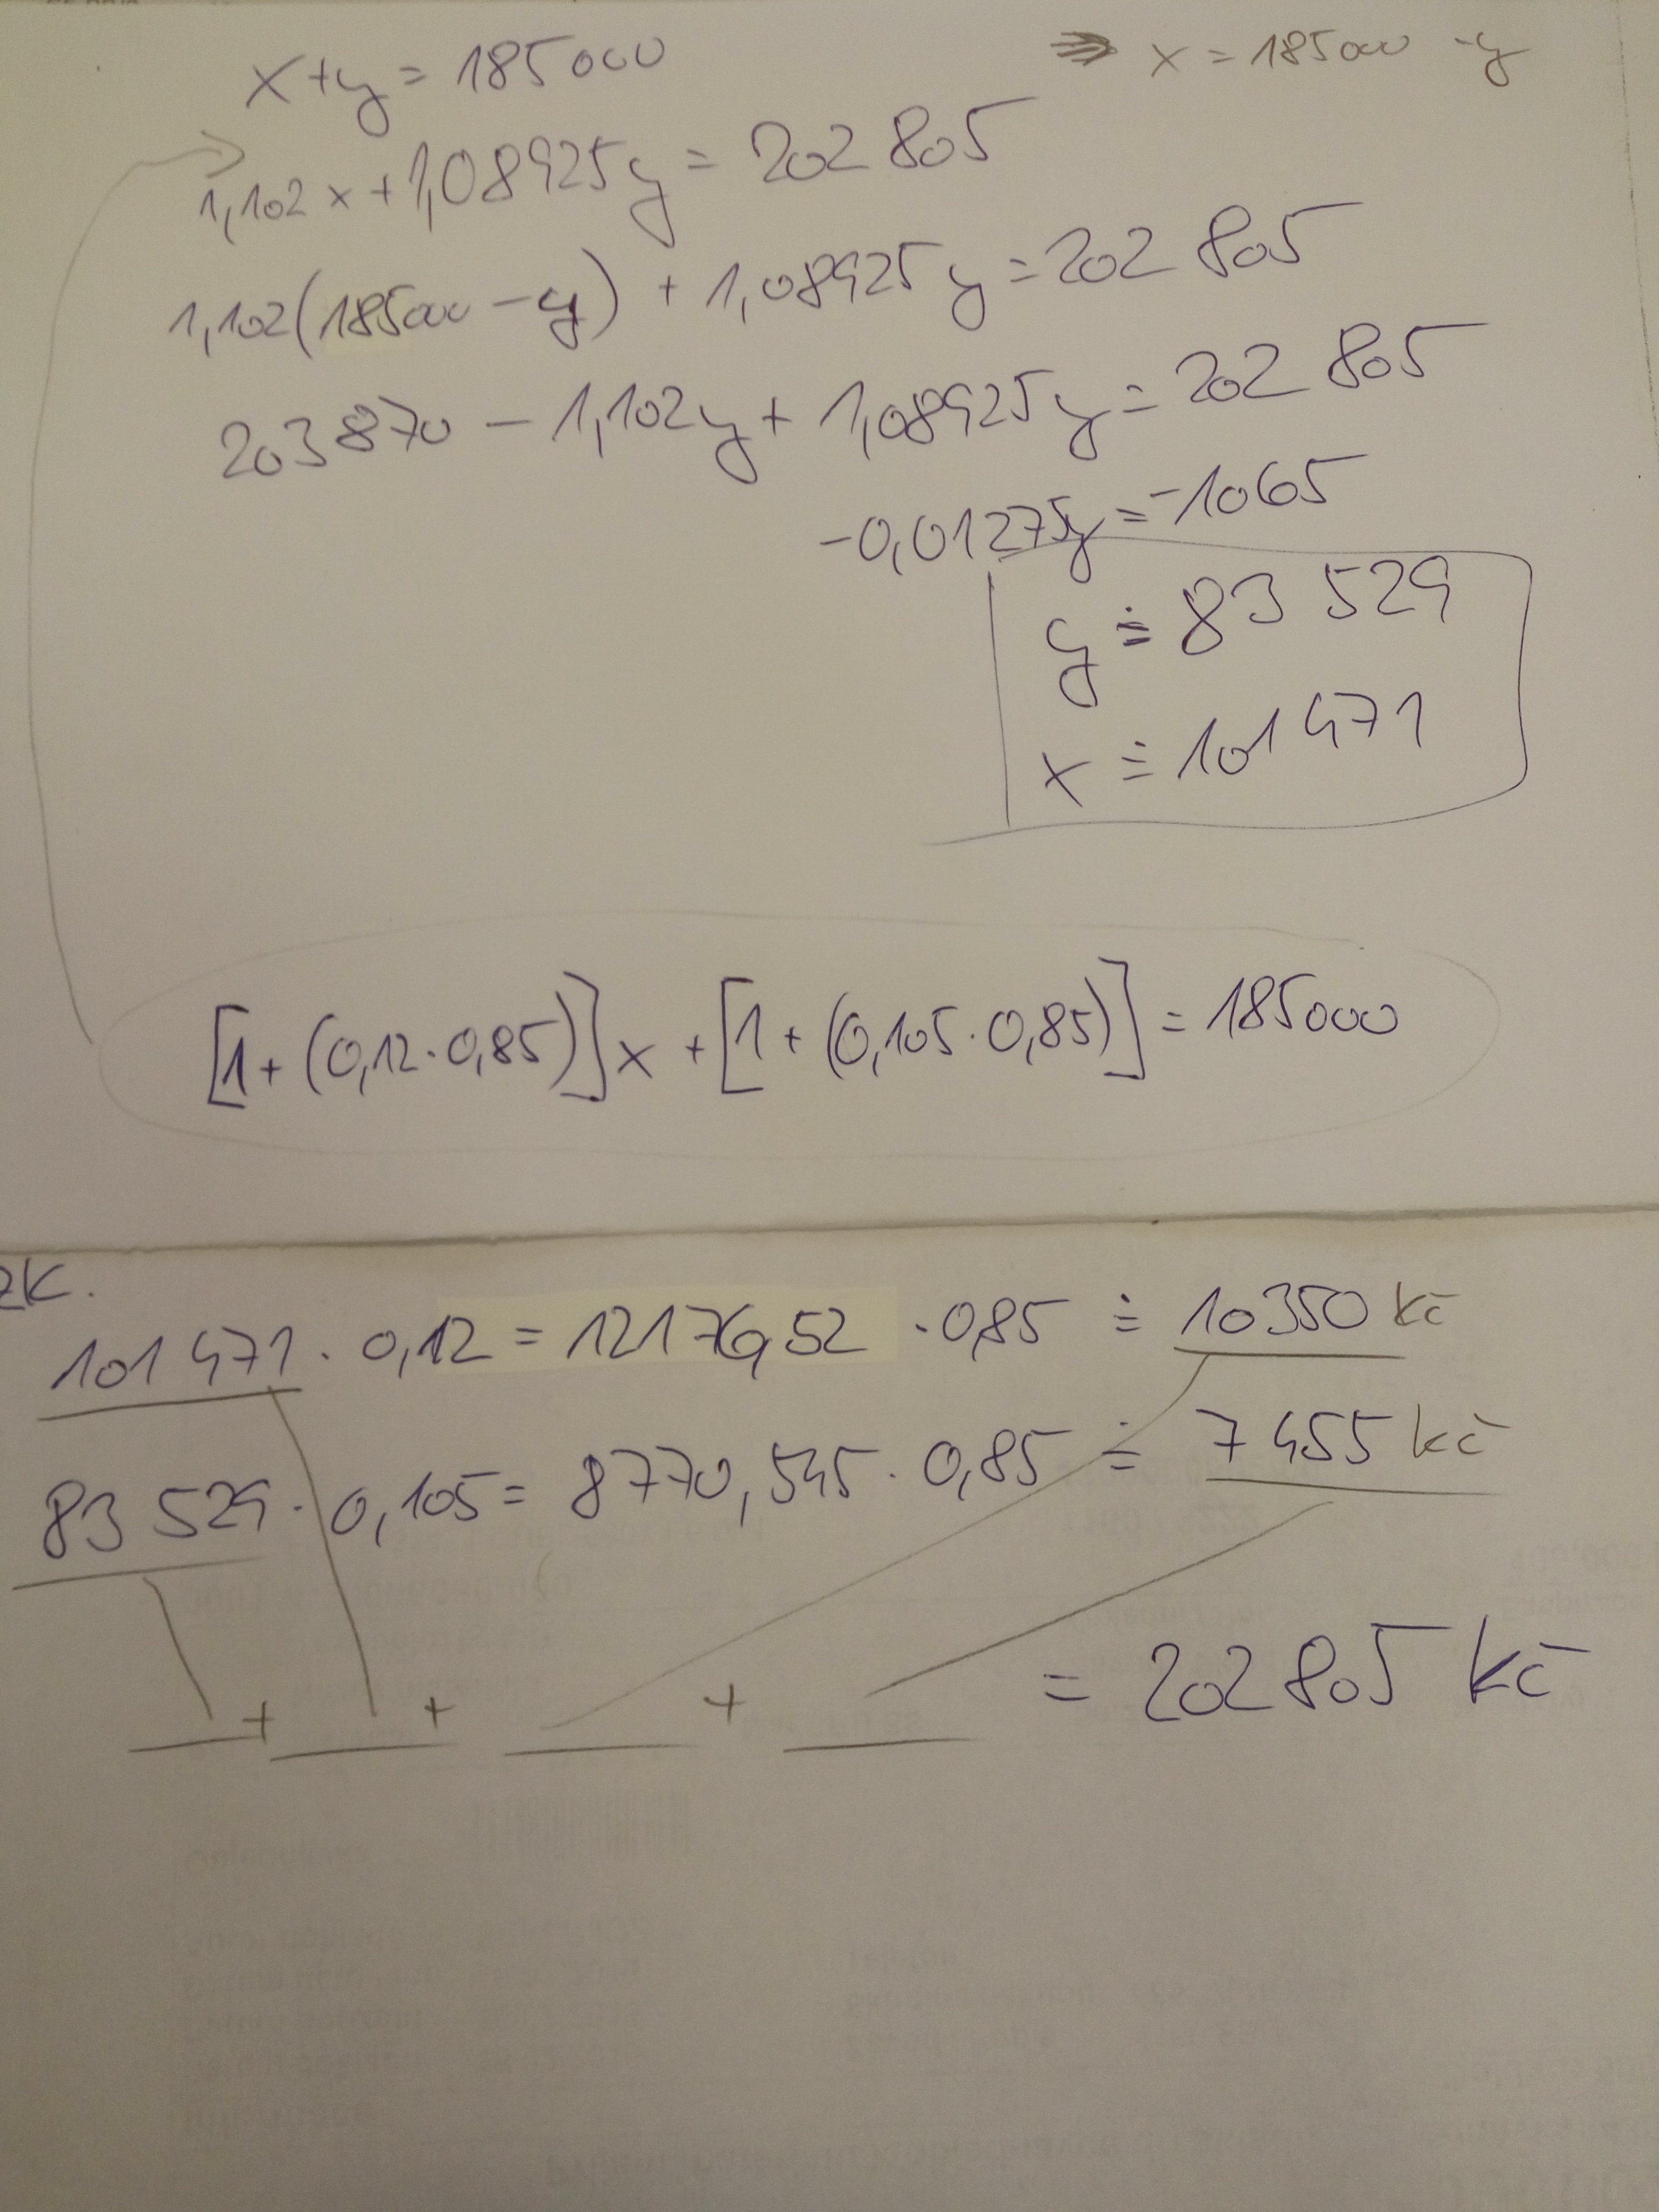 x+y = 185000 => x = 185000 -y
1,102 x + 1,08925y = 202 805
1,102(185000 - y) + 1,08925y = 202 805
203 870 - 1,102y + 1,08925y = 202 805
-0,01275y = -1065
y ≐ 83 529
x ≐ 101 471
[1+(0,12·0,85)]x + [1+(0,105·0,85)] = 185000
ZK.
101 471 · 0,12 = 12176,52 · 0,85 ≐ 10350 Kč
83 529 · 0,105 = 8770,545 · 0,85 ≐ 7 455 Kč
__ + __ + __ + __ = 202 805 Kč